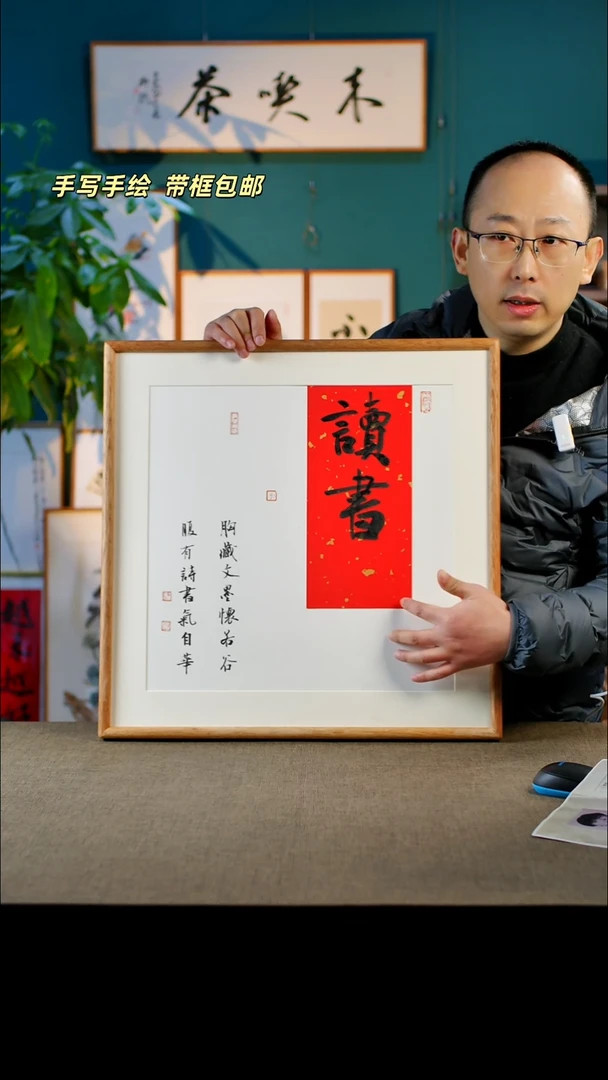 喫茶
手写手绘 带框包邮
讀書
胸藏文墨懷若谷
腹有詩書氣自華